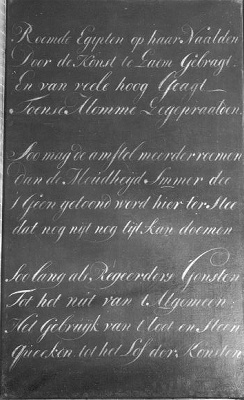 Roemde Egipten op haar Naalden
Door de Konst te Saem Gebragt
En van veele hoog Geagt
Toense Momme
Soo mag de amstel meerder roemen
dan de Heidheijd Immer dee
t Geen getoond werd hier ter Stee
dat nog nijt nog tijt kan doemen
Soo lang als Regeerders Gonsten
Tot het nut van t Algemeen
Het Gebruijk van t loot en Steen
Queeken tot het Lof der Konsten